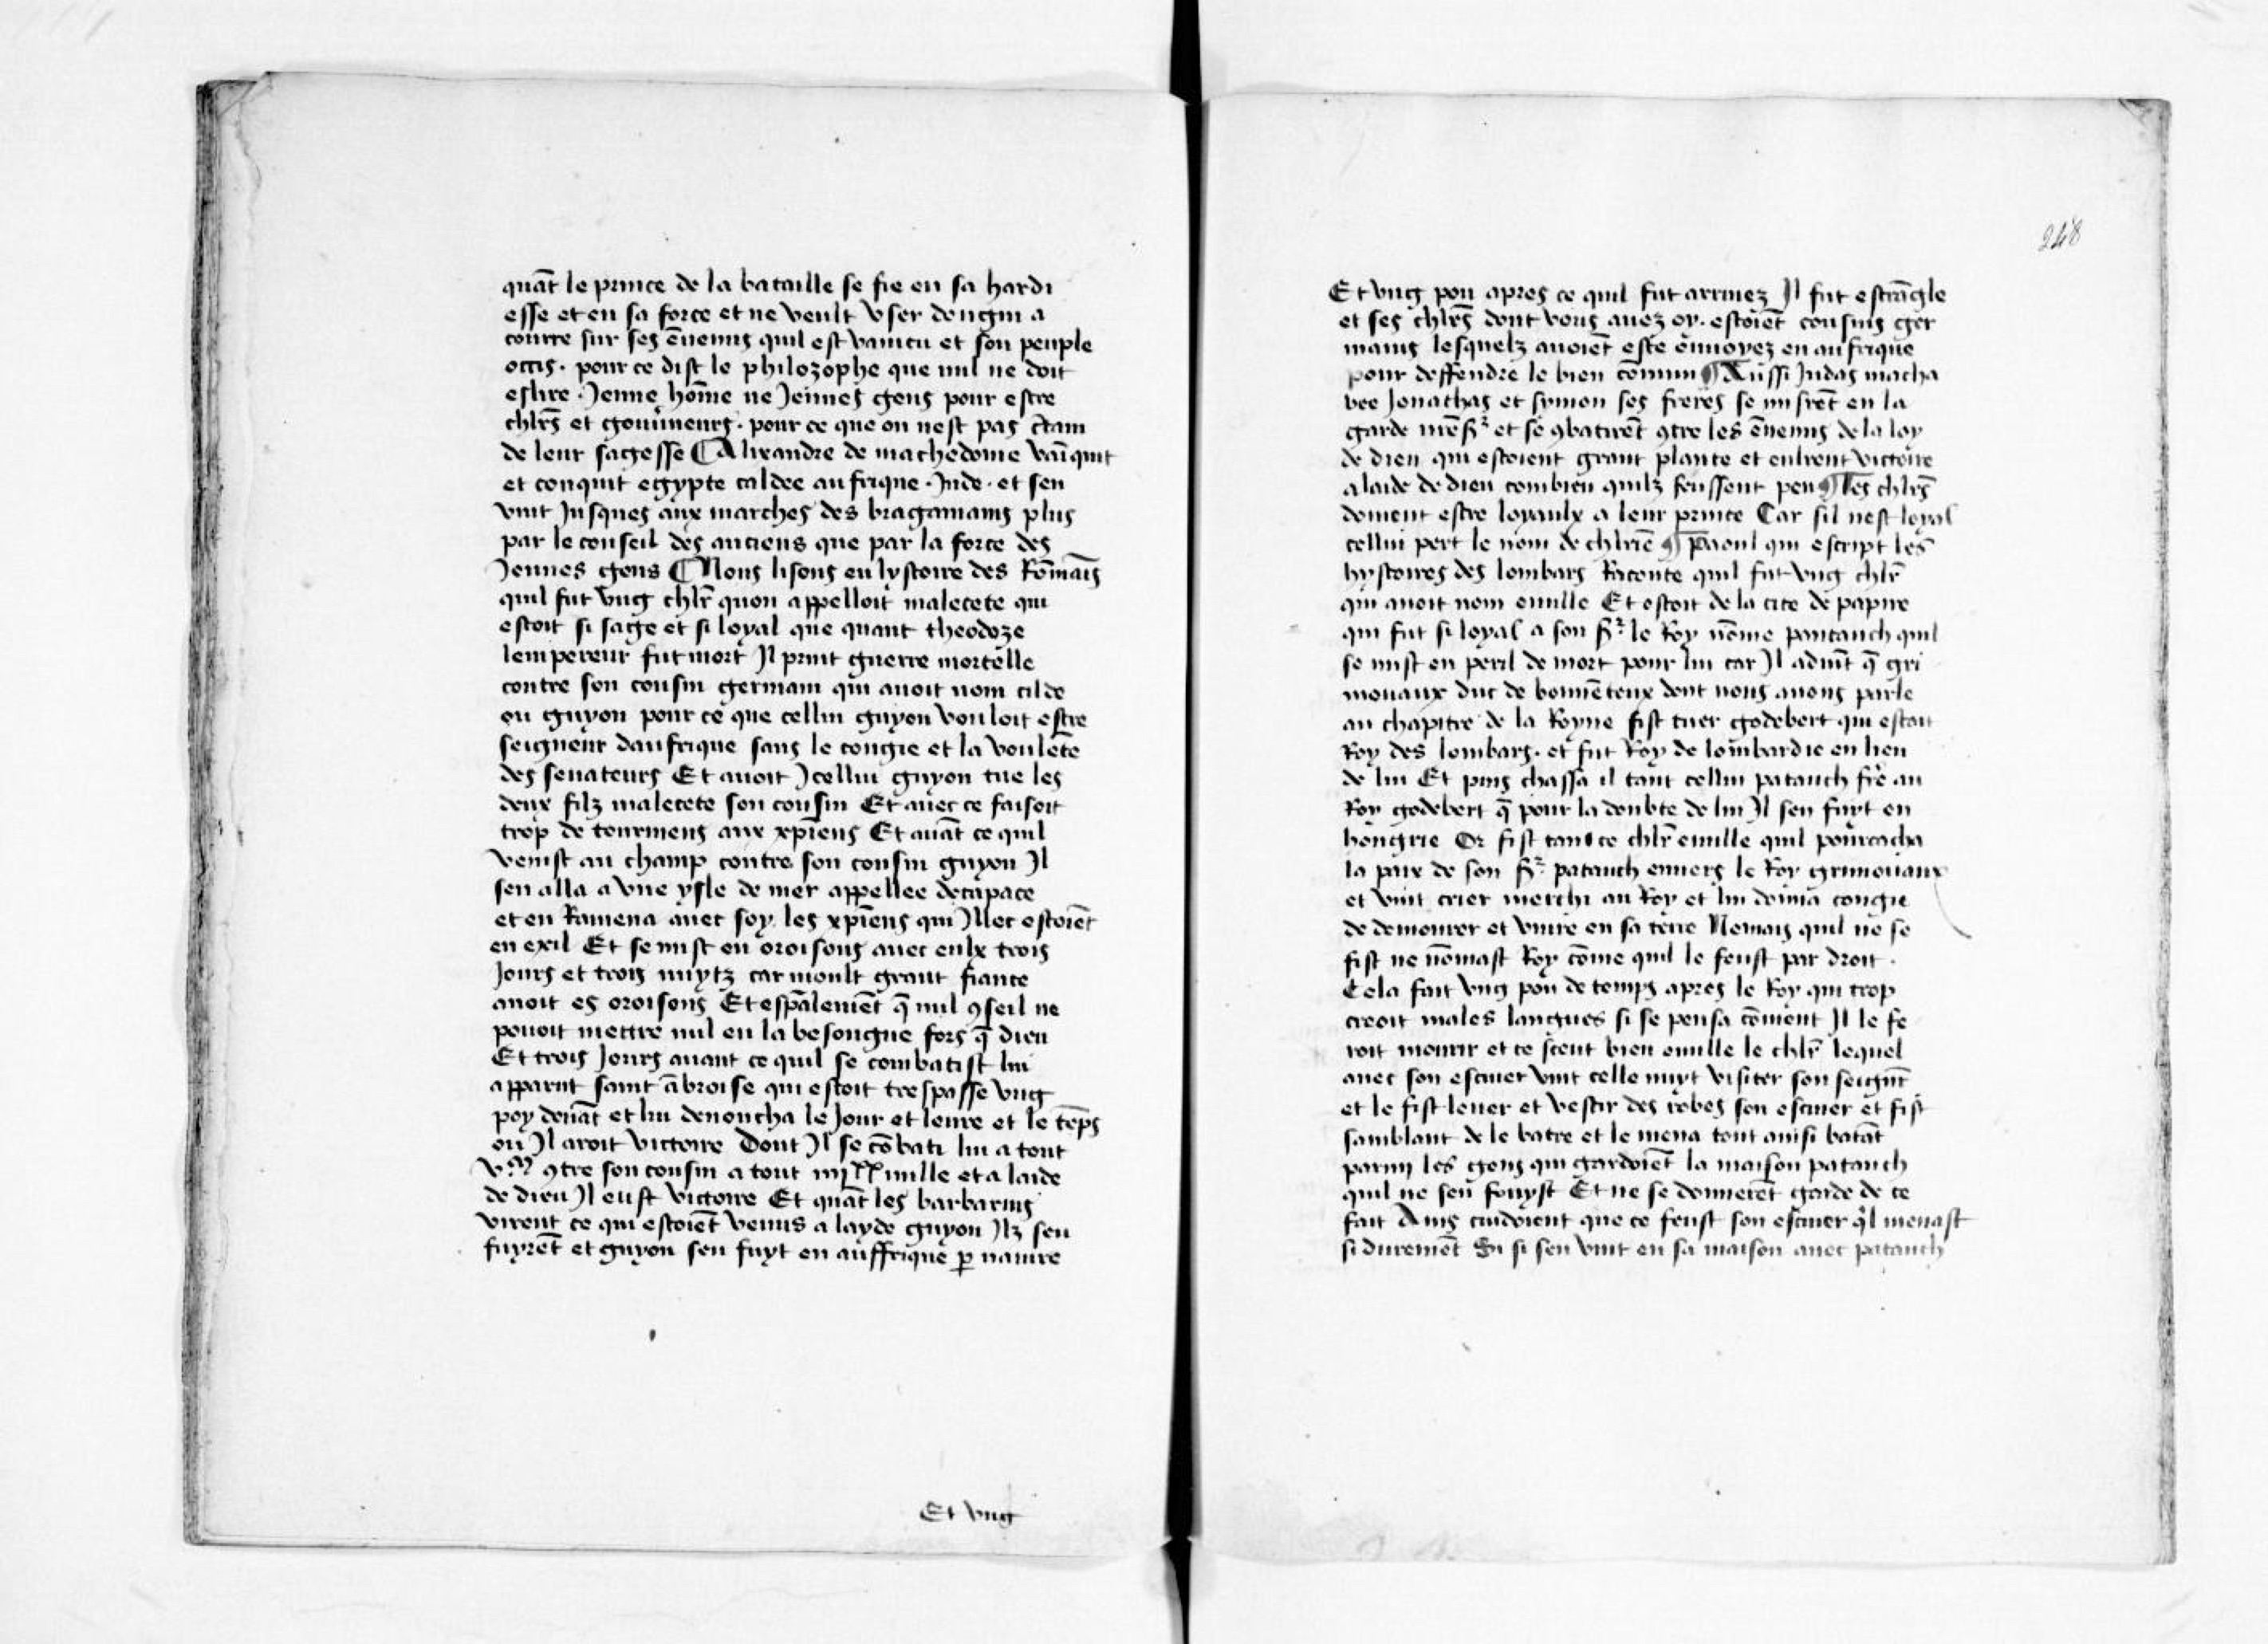 quāt le prince de la bataille se fie en sa hardi
esse et en sa force et ne veult vser dengin a
courre sur ses ēnemis quil est vaincu et son peuple
occis. pour ce dist le philozophe que nul ne doit
eslire Jenne hōme ne Jennes gens pour estre
chlrs̄ et gouu̾neurs. pour ce que on nest pas c̄tain
de leur sagesse ¶ Alixandre de machedoine vaīquit
et conquit egypte caldee aufrique. Jnde. et sen
vint Jusques aux marches des bragamains plus
par le conseil des anciens que par la force des
Jennes gens ¶ Nous lisons en lystoire des Rōmaīs
quil fut vng chlr̄ quon appelloit malecete qui
estoit si sage et si loyal que quant theodoze
lempereur fut mort Jl print guerre mortelle
contre son cousin germain qui auoit nom cilde
ou guyon pour ce que cellui guyon vouloit estre
seigneur daufrique sans le congie et la voulēte
des senateurs Et auoit Jcellui guyon tue les
deux filz malecete son cousin Et auec ce faisoit
trop de tourmens aux xp̄iens Et auāt ce quil
venist au champ contre son cousin guyon Jl
sen alla a vne ysle de mer appellee decapace
et en Ramena auec soy les xp̄iens qui Jllec estoiēt
en exil Et se mist en oroisons auec eulx trois
Jours et trois nuytz car moult grant fiance
auoit es oroisons Et esp̄alemēt q̄ nul ꝯseil ne
pouoit mettre nul en la besongne fors q̄ dieu
Et trois Jours auant ce quil se combatist lui
apparut saint ābroise qui estoit trespasse vng
poy deuāt et lui denoncha le Jour et leure et le tēps
ou Jl aroit victoire Dont Jl se cōbati lui a tout
v.M ꝯtre son cousin a tout iiijxx mille et a laide
de dieu Jl eust victoire Et quāt les barbarins
virent ce qui estoiēt venus a layde guyon Jlz sen
fuyrēt et guyon sen fuyt en auffrique ꝑ nauire
Et vng
248
Et vng pou apres ce quil fut arriuez Jl fut estrāgle
et ses chlrs̄ dont vous auez oy. estoiēt cousins ger
mains lesquelz auoiēt este ēuuoyez en aufrique
pour deffendre le bien cōmun ¶ Aussi Judas macha
bee Jonathas et symon ses freres se misrēt en la
garde nr̄e sr̄ et se ꝯbatirēt ꝯtre les ēnemis de la loy
de dieu qui estoient grant plante et eulrent victoire
a laide de dieu combien quilz feussent peu ¶ Les chlrs̄
doiuent estre loyaulx a leur prince Car sil nest loyal
cellui pert le nom de chlr̄ie ¶ Paoul qui escript les
hystoires des lombars Raconte quil fut vng chlr̄
qui auoit nom enulle Et estoit de la cite de papire
qui fut si loyal a son sr̄ le Roy nōme pantauch quil
se mist en peril de mort pour lui car Jl aduīt q̄ gri
mouaux duc de bonnēteux dont nous auons parle
au chapitre de la Royne fist tuer godebert qui estoit
Roy des lombars. et fut Roy de lombardie en lieu
de lui Et puis chassa il tant cellui patauch frē au
Roy godebert q̄ pour la doubte de lui Jl sen fuyt en
hongrie Or fist tant ce chlr̄ enulle quil pourcacha
la paix de son sr̄ patauch enuers le Roy grimouaux
et vint crier merchi au Roy et lui donna congie
de demourer et viure en sa terre Nemais quil ne se
fist ne nōmast Roy cōme quil le feust par droit.
Cela fait vng pou de temps apres le Roy qui trop
creoit males langues si se pensa cōment Jl le fe
roit mourir et ce sceut bien enulle le chlr̄ lequel
auec son escuier vint celle nuyt visiter son seignr̄
et le fist leuer et vestir des robes son escuier et fist
samblant de le batre et le mena tout ainsi batāt
parmy les gens qui gardoiēt la maison patauch
quil ne sen fouyst Et ne se donnerēt garde de ce
fait Ains cuidoient que ce feust son escuier q̓l menast
si duremēt En si sen vint en sa maison auec patauch